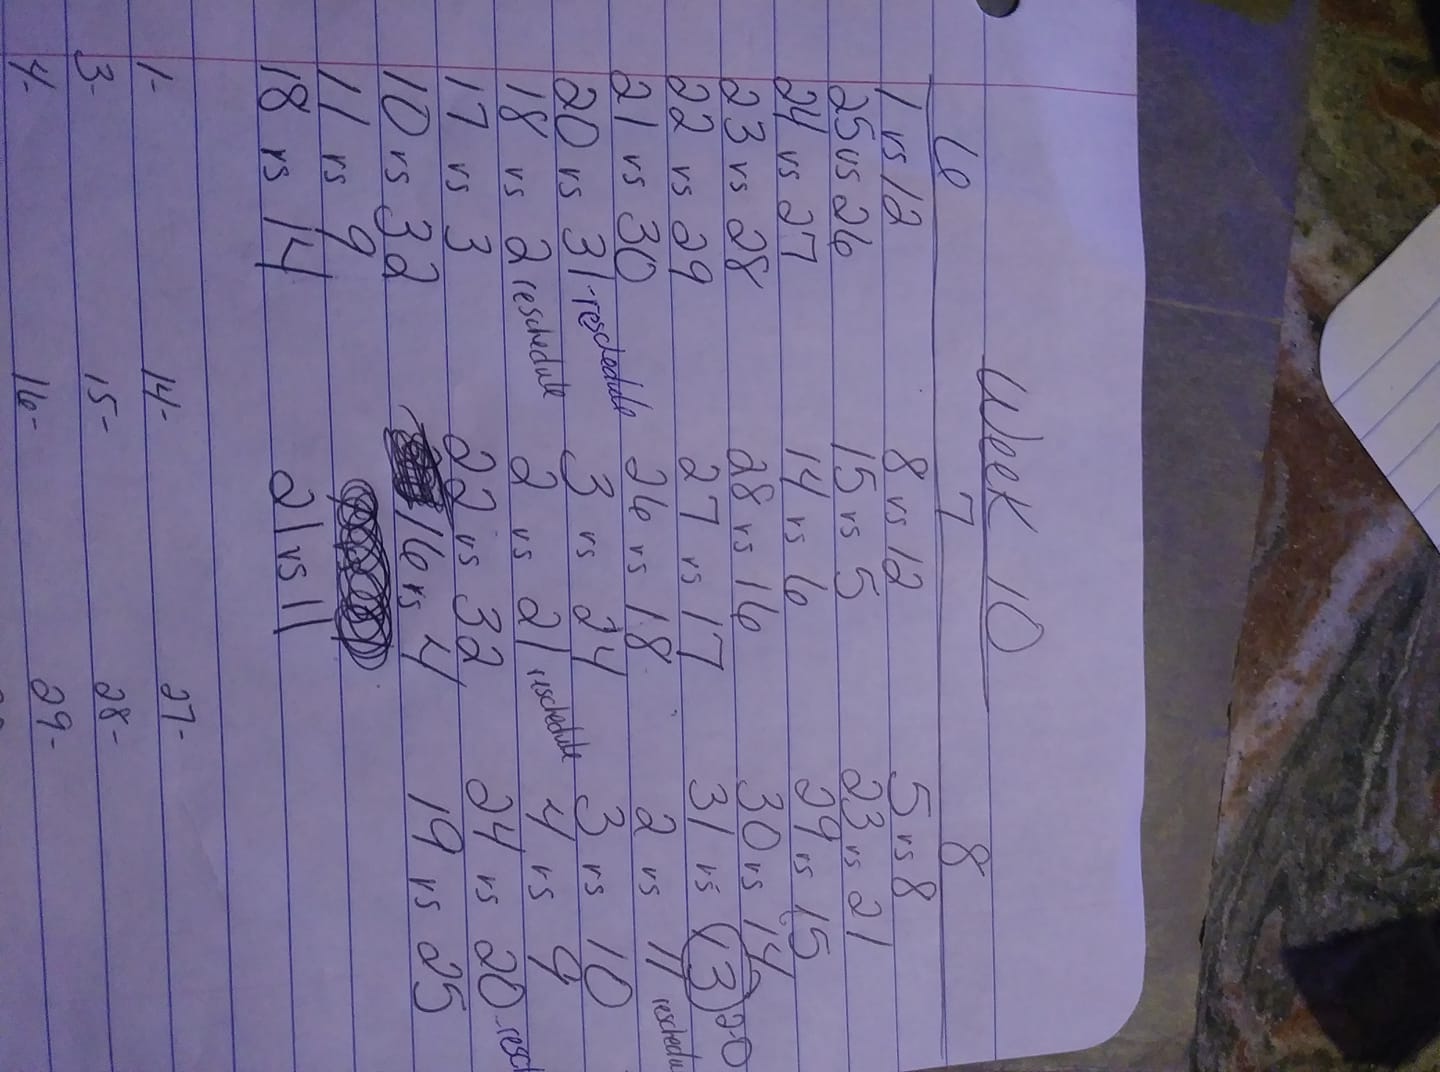 Week 10
6 7 8
1 vs 12 8 vs 12 5 vs 8
25 vs 26 15 vs 5 23 vs 21
24 vs 27 14 vs 6 29 vs 15
23 vs 28 28 vs 16 30 vs 14
22 vs 29 27 vs 17 31 vs 13 2-0
21 vs 30 26 vs 18 2 vs 11 reschedu
20 vs 31-reschedule 3 vs 24 3 vs 10
18 vs 2 reschedule 2 vs 21 reschedule 4 vs 9
17 vs 3 22 vs 32 24 vs 20-resch
10 vs 32 16 vs 4 19 vs 25
11 vs 9
18 vs 14 21 vs 11
1- 14- 27-
3- 15- 28-
4- 16- 29-